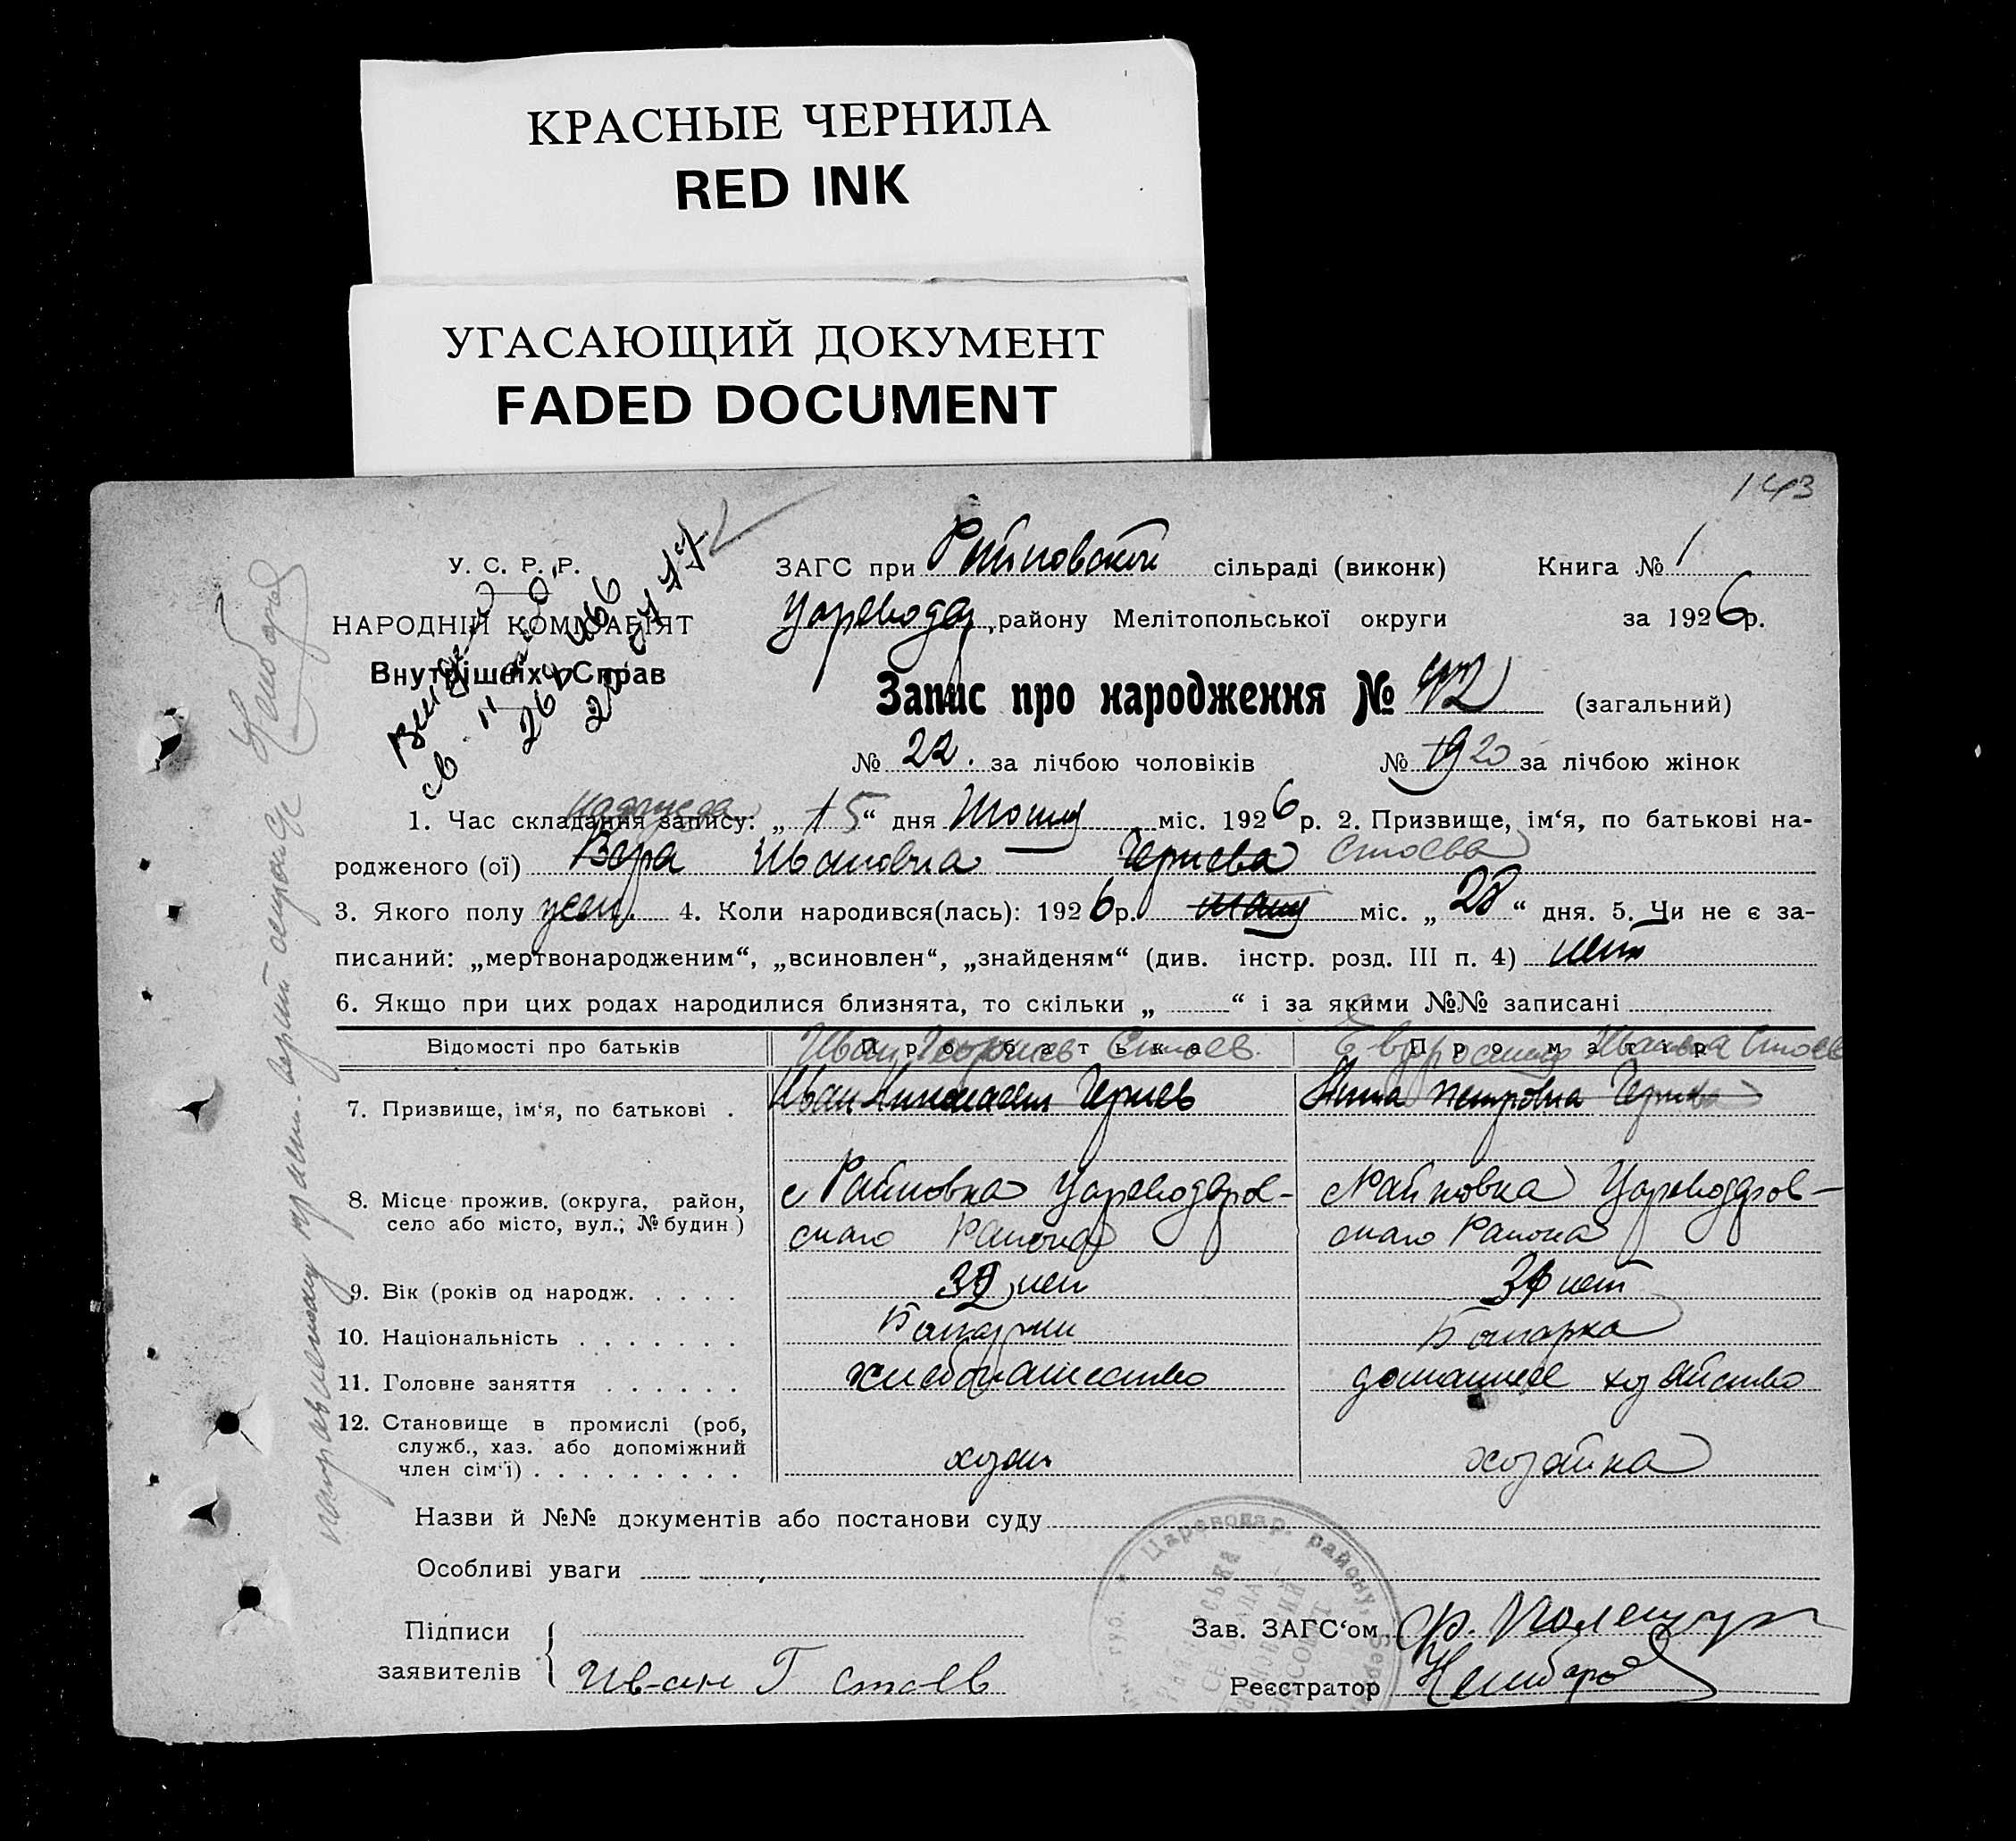 КРАСНЫЕ ЧЕРНИЛА
RED INK
УГАСАЮЩИЙ ДОКУМЕНТ
FADED DOCUMENT
143
У. С. Р. Р.
НАРОДНІЙ КОММСАРІЯТ
Внутрішніх Справ
ЗАГС при Райновской сільраді (виконк) Книга № 1
Цареводар. району Мелітопольської округи за 1926 р.
Запис про народження № 42 (загальний)
№ 22. за лічбою чоловіків № 19 20 за лічбою жінок
Надежда
1. Час складання запису: „15“ дня міс. 1926 р. 2. Призвище, ім‘я, по батькові на-
родженого (ої) Вера Ивановна Чернева Стоева
3. Якого полу жен. 4. Коли народився(лась): 1926 р. міс. „28“ дня. 5. Чи не є за-
писаний: „мертвонародженим“, „всиновлен“, „знайденям“ (див. інстр. розд. III п. 4) нет
6. Якщо при цих родах народилися близнята, то скільки „ “ і за якими №№ записані
Відомості про батьків Про батька Про матір
Иван Георгиев Стоев. Евфросиния Ивановна Стоева
7. Призвище, ім‘я, по батькові . Иван Николаевич Чернев Анна Петровна Чернева
8. Місце прожив. (округа, район, с Райновка Цареводаров- с Райновка Цареводаров-
село або місто, вул., № будин) скаго Района скаго Района
9. Вік (років од народж. . . . . 32 лет 31 лет
10. Національність . . . . . . . Болгарин Болгарка
11. Головне заняття . . . . . . хлебопашество домашнее хозяйство
12. Становище в промислі (роб,
служб., хаз. або допоміжний
член сім‘ї) . . . . . . . . . хозяин хозяйка
Назви й №№ документів або постанови суду
Особливі уваги
Підписи
заявителів Иван Г Стоев
Зав. ЗАГС‘ом Ф. Полещук
Реєстратор
Цареводар. району,